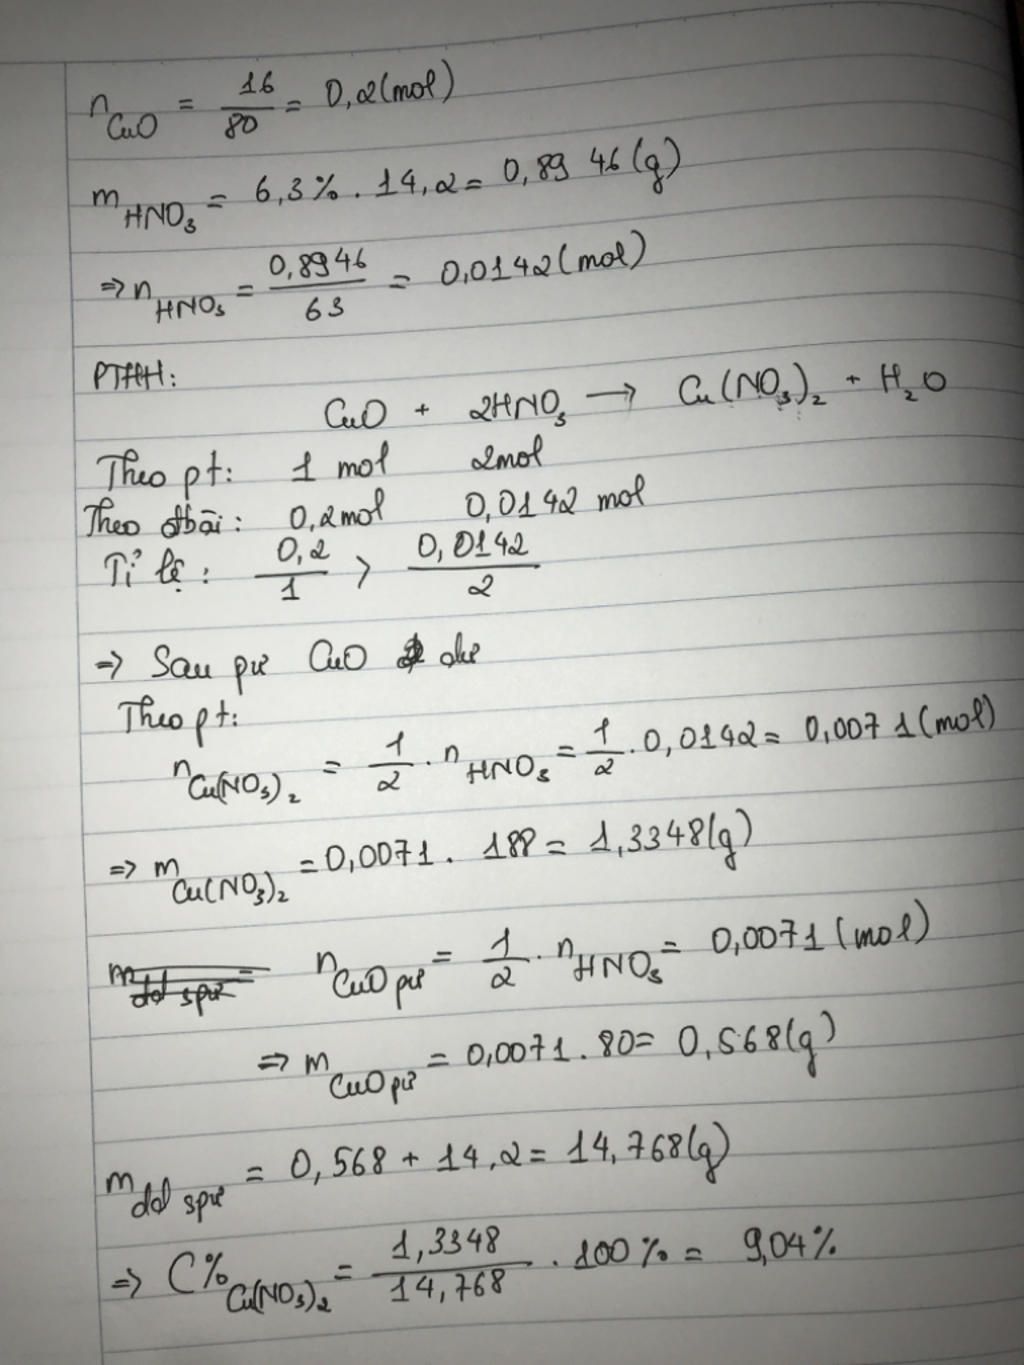 n CuO = 16/80 = 0,2 (mol)
m HNO3 = 6,3% . 14,2 = 0,8946 (g)
=> n HNO3 = 0,8946/63 = 0,0142 (mol)
PTHH:
CuO + 2HNO3 → Cu(NO3)2 + H2O
Theo pt: 1 mol 2mol
Theo đbài: 0,2mol 0,0142 mol
Tỉ lệ: 0,2/1 > 0,0142/2
=> Sau pư CuO dư
Theo pt:
n Cu(NO3)2 = 1/2 . n HNO3 = 1/2 . 0,0142 = 0,0071 (mol)
=> m Cu(NO3)2 = 0,0071 . 188 = 1,3348 (g)
m dd spư = n CuO pư = 1/2 . n HNO3 = 0,0071 (mol)
=> m CuO pư = 0,0071 . 80 = 0,568 (g)
m dd spư = 0,568 + 14,2 = 14,768 (g)
=> C% Cu(NO3)2 = 1,3348/14,768 . 100% = 9,04%